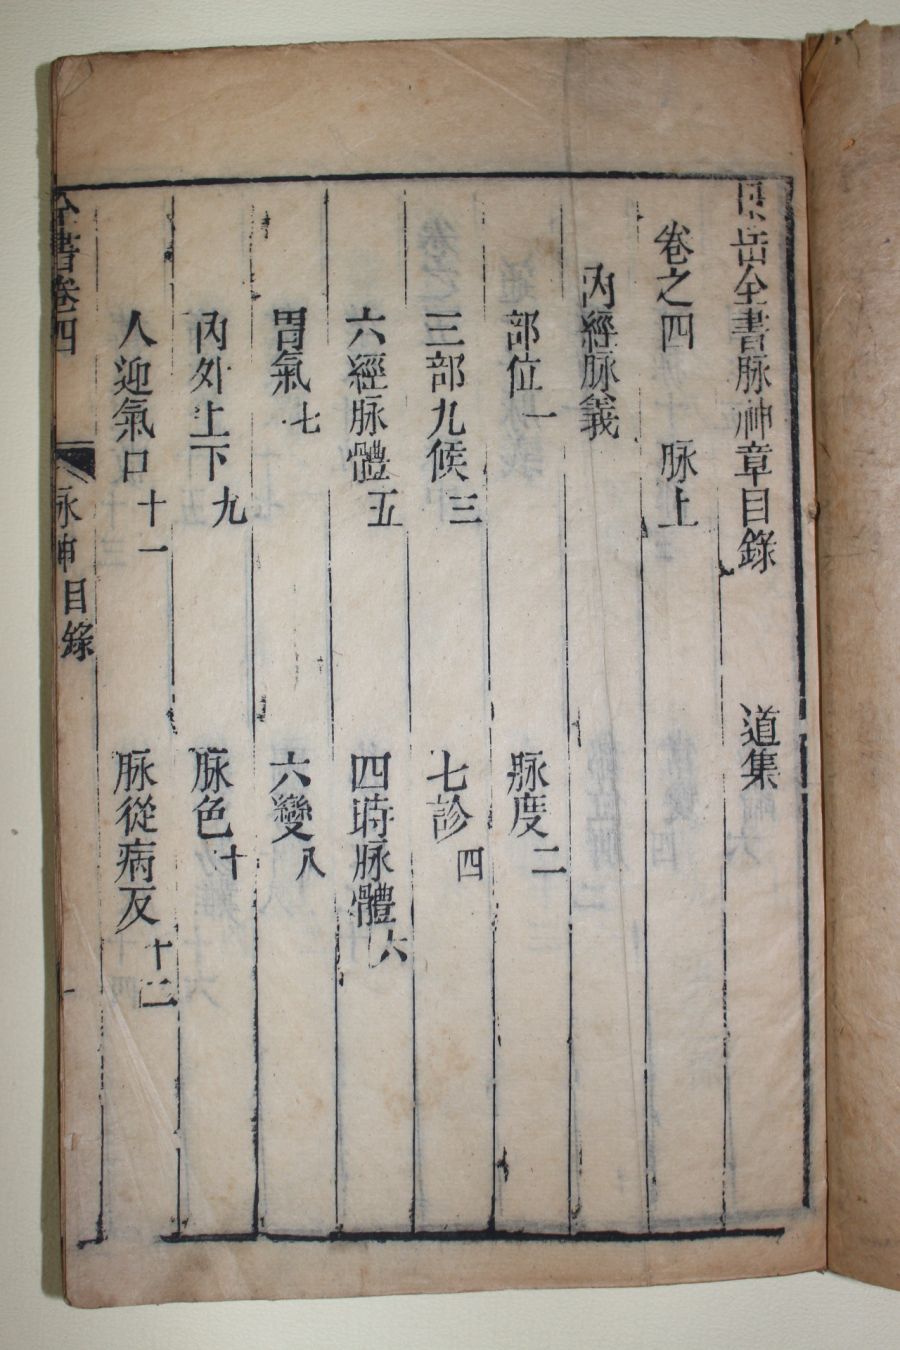 景岳全書脉神章目錄 道集
卷之四 脉上
內經脉義
部位一 脉度二
三部九候三 七診四
六經脉體五 四時脉體六
胃氣七 六變八
內外上下九 脉色十
人迎氣口十一 脉從病反十二
全書卷四 脉神目錄 一